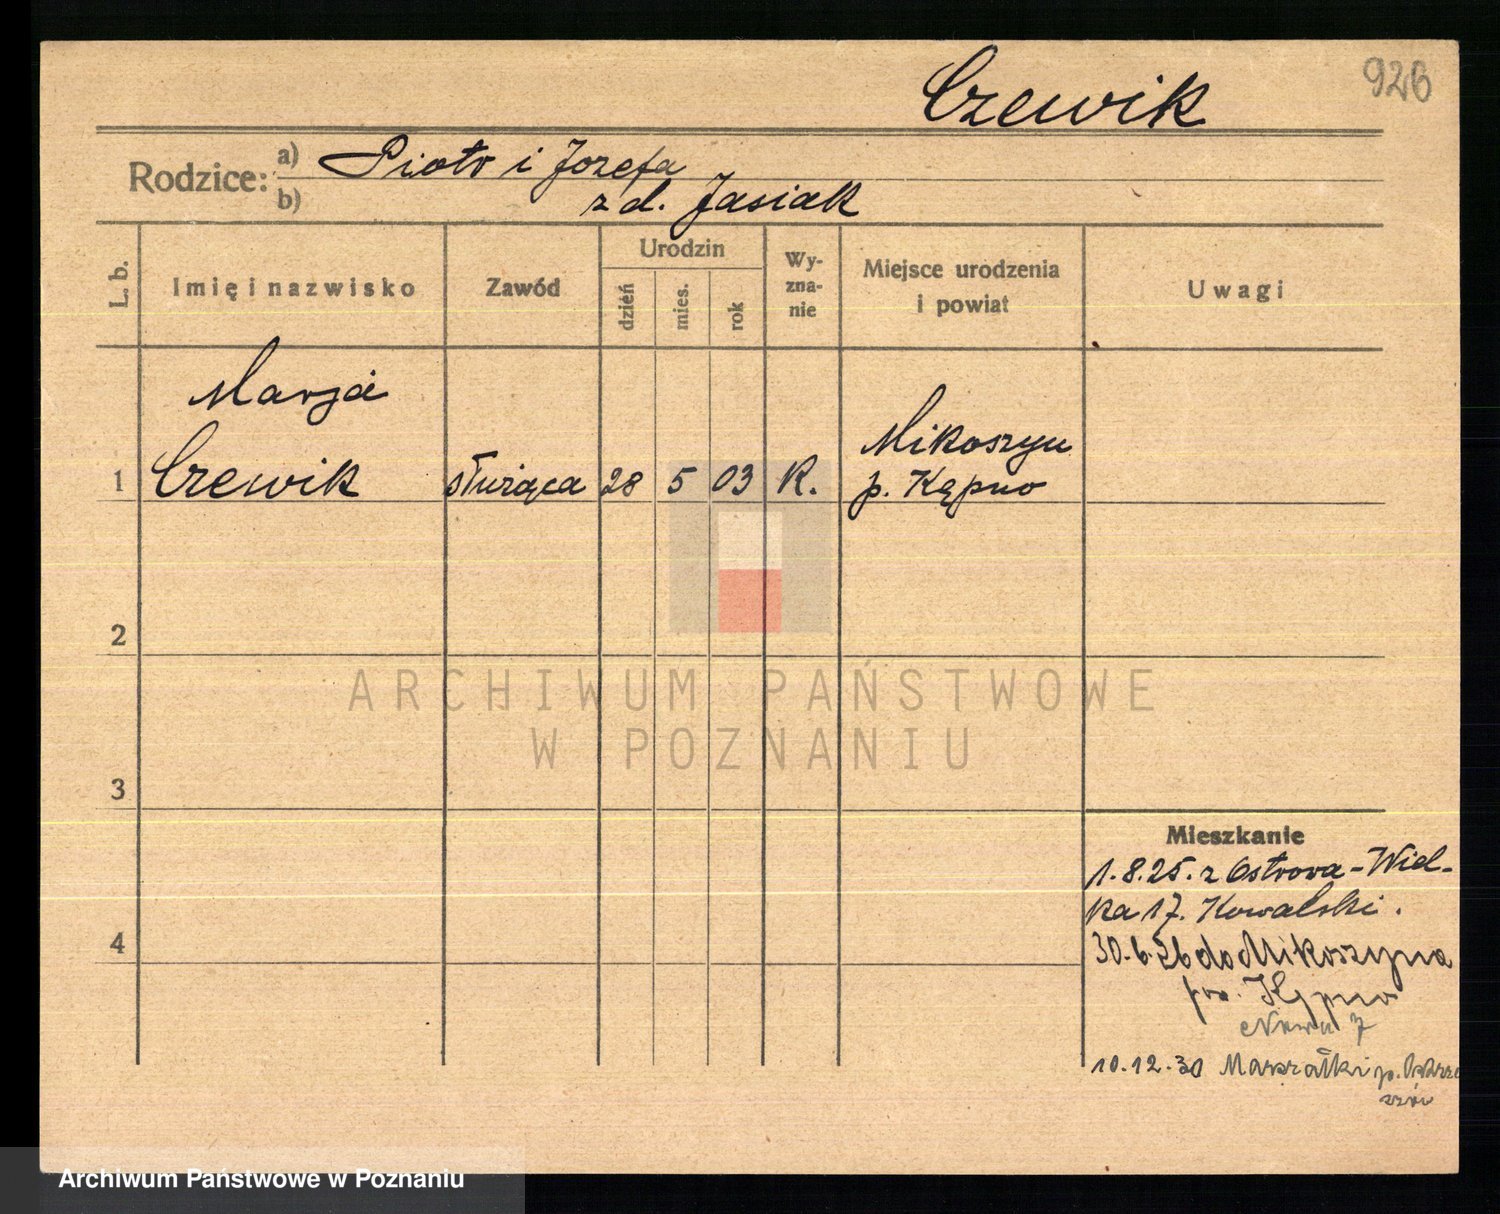 Czewik
926
Rodzice: a) Piotr i Jozefa
b) z d. Jasiak
L. b.
Imię i nazwisko
Zawód
Urodzin
dzień
mies.
rok
Wy-
zna-
nie
Miejsce urodzenia
i powiat
Uwagi
Marja
1 Czewik służąca 28 5 03 K. Mikoszyn
p. Kępno
2
3
4
ARCHIWUM PAŃSTWOWE
W POZNANIU
Mieszkanie
1.8.25. z Ostrowa-Wiel-
ka 17. Kowalski.
30.6.26 do Mikoszyna
pow. Kępno
Nowa 7
10.12.30 Marszałki p. Ostrze
szów
Archiwum Państwowe w Poznaniu